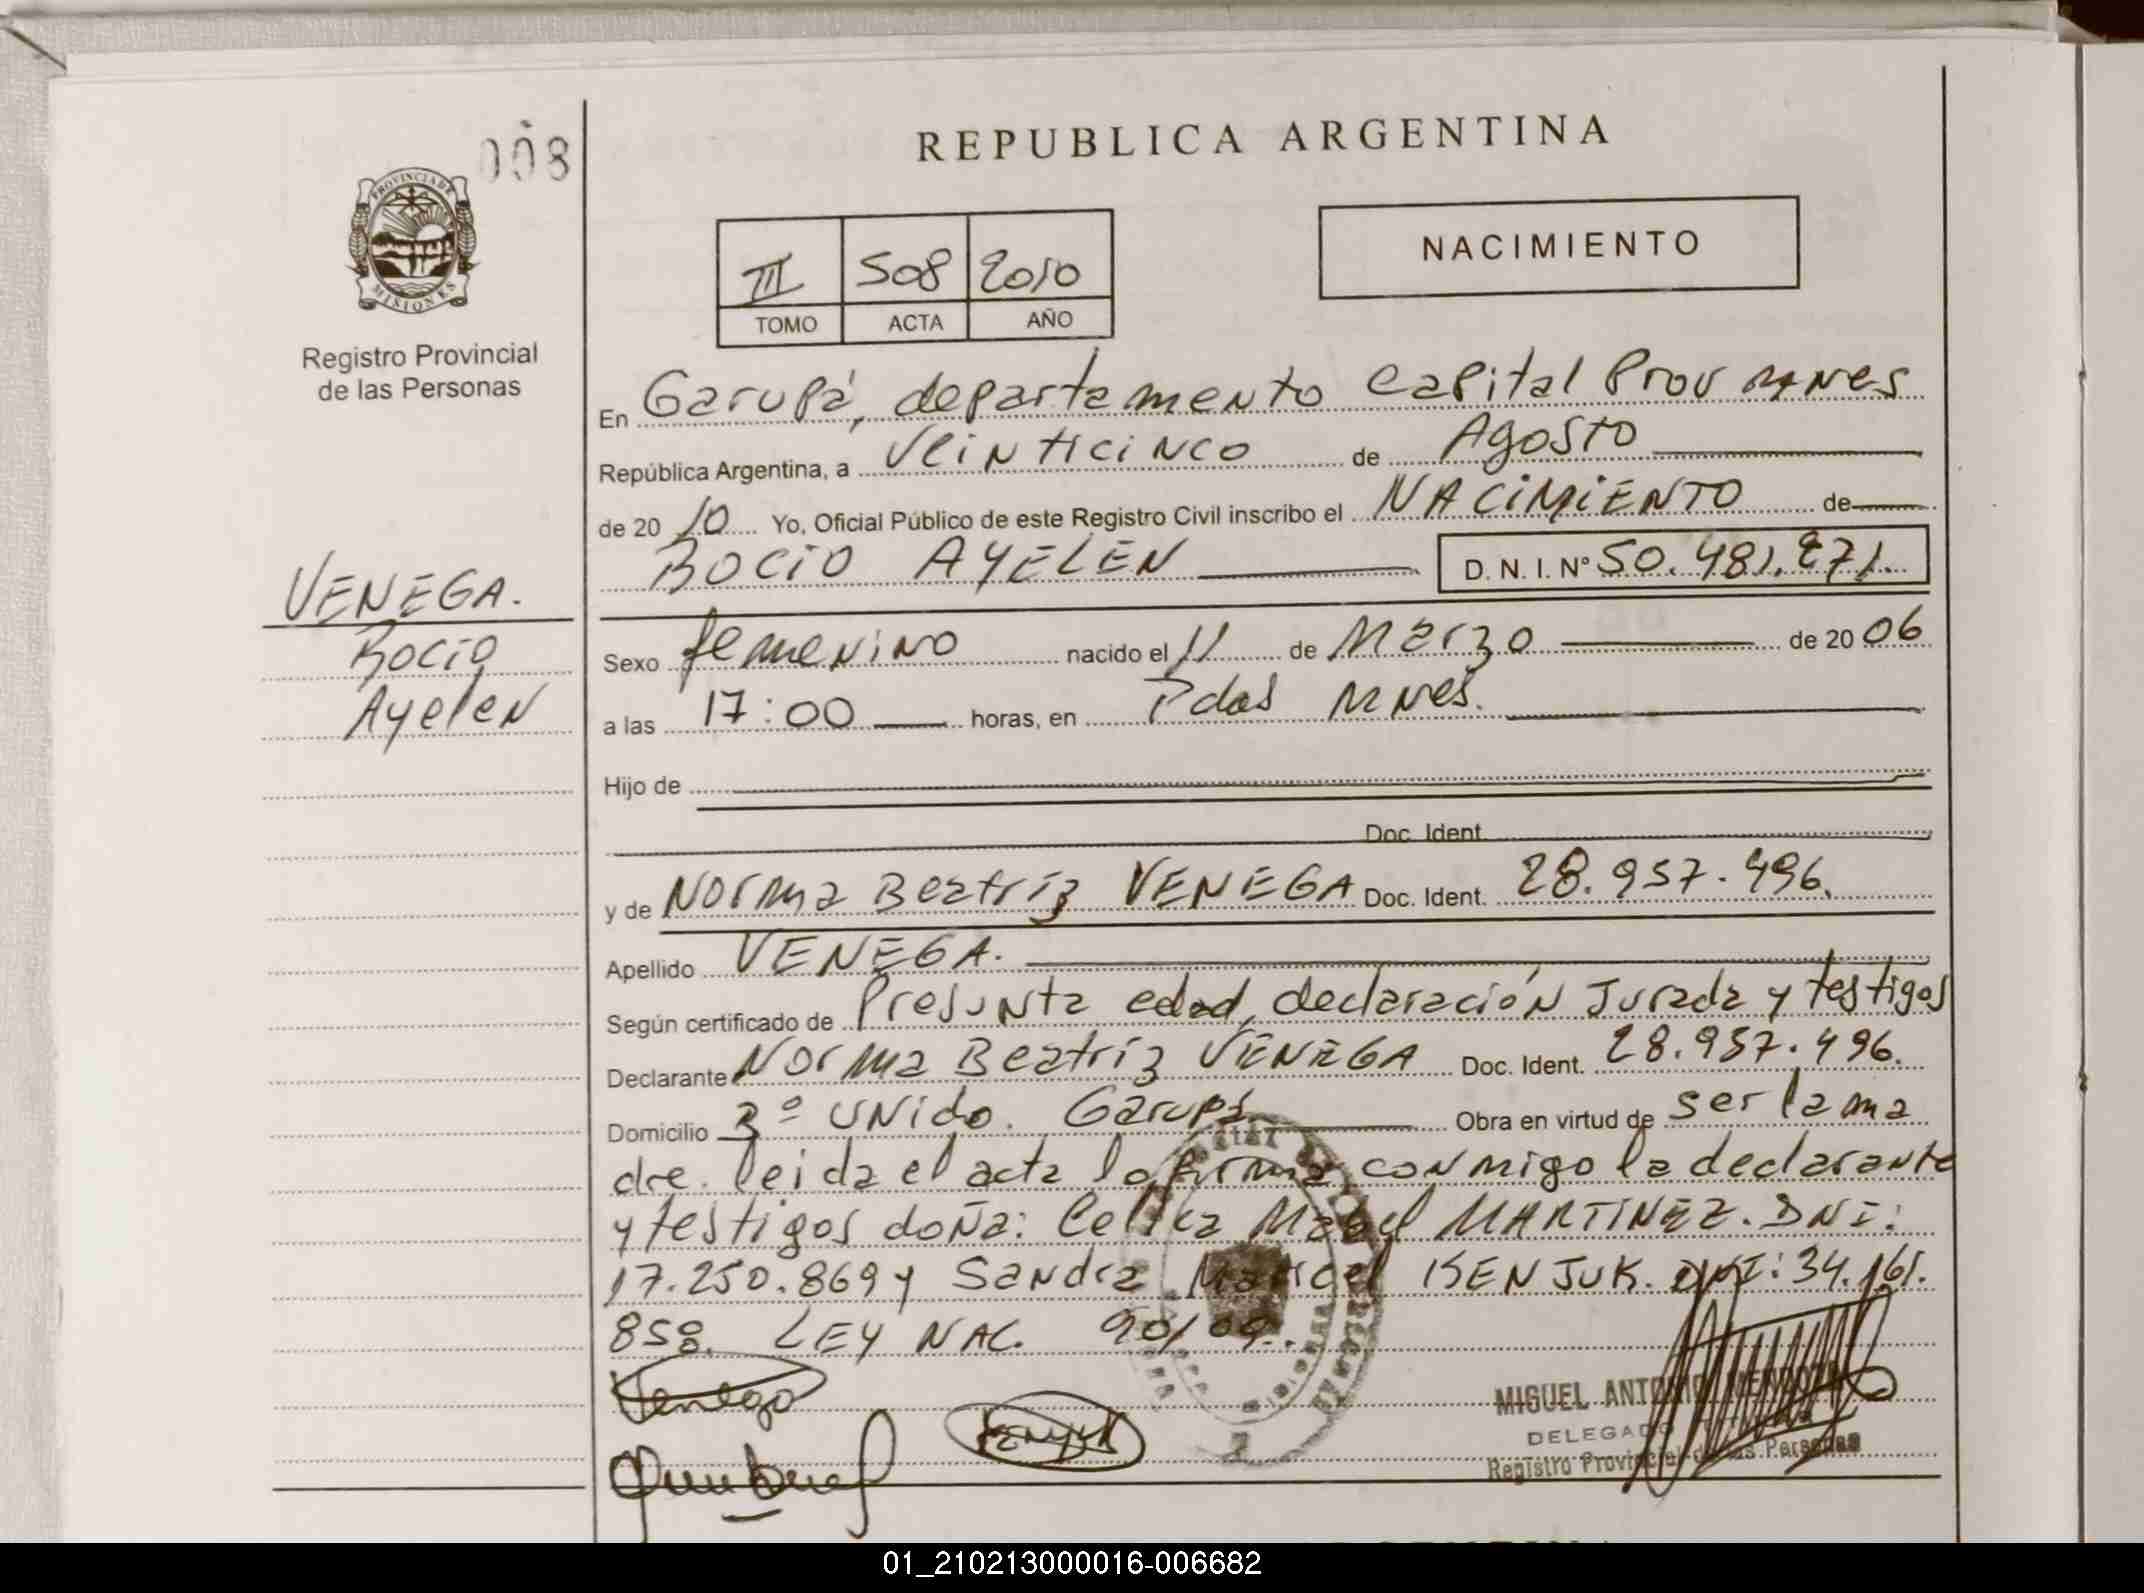 008
REPUBLICA ARGENTINA
PROVINCIA DE
MISIONES
Registro Provincial
de las Personas
III 508 2010
TOMO ACTA AÑO
NACIMIENTO
En Garupá, departamento Capital Prov Mnes
República Argentina, a Veinticinco de Agosto
de 20 10 Yo, Oficial Público de este Registro Civil inscribo el NACIMIENTO de
ROCIO AYELEN D. N. I. Nº 50.481.271.
VENEGA.
Rocio
Ayelen
Sexo femenino nacido el 11 de Marzo de 20 06
a las 17:00 horas, en Pdas Mnes.
Hijo de
Doc. Ident.
y de Norma Beatríz VENEGA Doc. Ident. 28.957.496.
Apellido VENEGA.
Según certificado de Presunta edad, declaración Jurada y testigos
Declarante Norma Beatríz VENEGA Doc. Ident. 28.957.496.
Domicilio Bº Unido. Garupá Obra en virtud de ser la ma
dre. leida el acta la firma conmigo la declarante
y testigos doña: Celica Mabel MARTINEZ. DNI:
17.250.869 y Sandra Maricel KENJUK. DNI: 34.161.
858. LEY NAC. 90/09.
Venega
MIGUEL ANTONIO MENDOZA
DELEGADO
Registro Provincial de las Personas
01_210213000016-006682